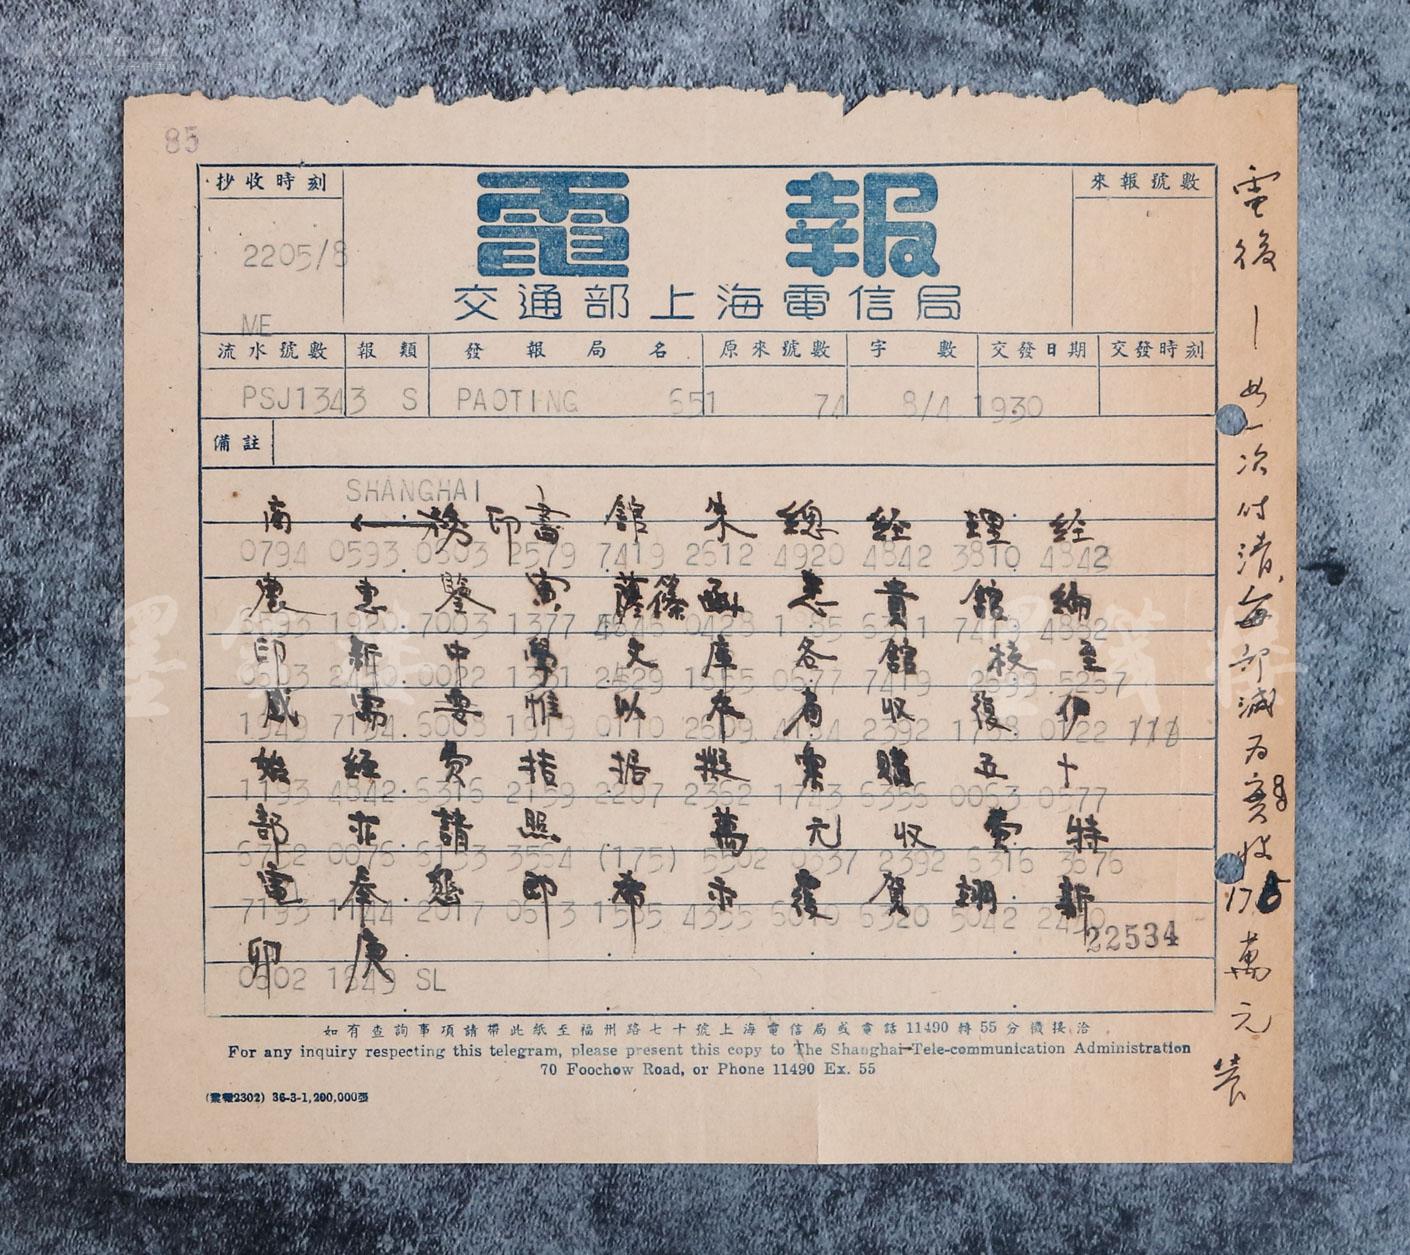 85
抄收時刻
電報
來報號數
2205/8
交通部上海電信局
ME
流水號數 報類 發報局名 原來號數 字數 交發日期 交發時刻
PSJ1343 S PAOTING 651 74 8/4 1930
備註
SHANGHAI
商 ← 務 印書 館 朱 總 經 理 經
0794 0593 0603 2579 7419 2612 4920 4842 3810 4842
農 惠 鑒 寅 篠 函 悉 貴 館 編
1920 7003 1377 0428 7419
印 新 中 學 文 庫 各 館 校 至
0603 2450 0022 1331 2429 7419 5267
感 需 要 惟 以 本 省 收 復 伊
1949 7194 6008 1919 0110 2609 4164 2392 1788 0122 111
始 經 費 拮 据 擬 購 五 十
1193 4842 6316 2159 2207 2362 6356 0063 0577
部 並 請 照 萬 元 收 費 特
3564 (175) 5502 0337 2392 6316 3676
電 奉 懇 即 希 示 復 賀 翊 新
7193 1144 2017 0613 1585 4355 6320 5042 2450
22534
卯 庚
0602 1649 SL
如有查詢事項請帶此紙至福州路七十號上海電信局或電話11490轉55分機接洽
For any inquiry respecting this telegram, please present this copy to The Shanghai Tele-communication Administration
70 Foochow Road, or Phone 11490 Ex. 55
(電報2302) 36-3-1,200,000張
電復 如一次付清,每部減為實收175萬元
墨箋樓